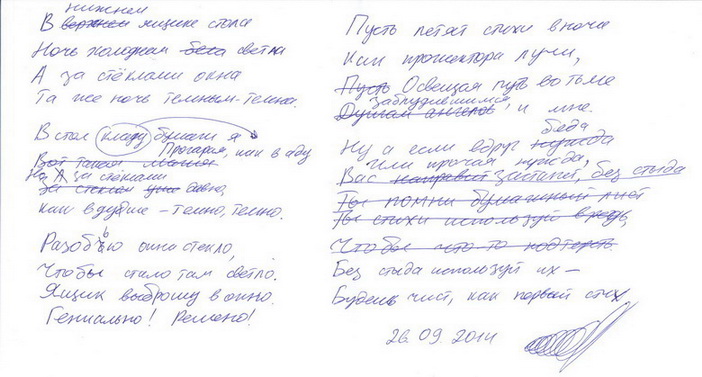 нижнем
В верхнем ящике стола
Ночь холодная бела светла
А за стёклами окна
Та же ночь темным-темно.
В стол кладу бумаги я
Прогария, как в аду
Вот такая
На А за стёклами
За стеклом уже давно,
Как в дубне – темно, темно.
Разобью окна стекло,
Чтобы стало там светло.
Ящик выброшу в окно.
Гениально! Решено!
Пусть летят стихи в ночи
Как прожектора лучи,
Пусть Освещая путь во тьме
заблудившимся,
Душам ангелов, и мне.
беда
Ну а если вдруг нужда
или прочая нужда,
Вас застанет, без стыда
Ты помни бумажный лист
Ты стихи используй вредь,
Чтобы что-то подтереть
Без стыда используй их –
Будешь чист, как первый стих
26.09.2014